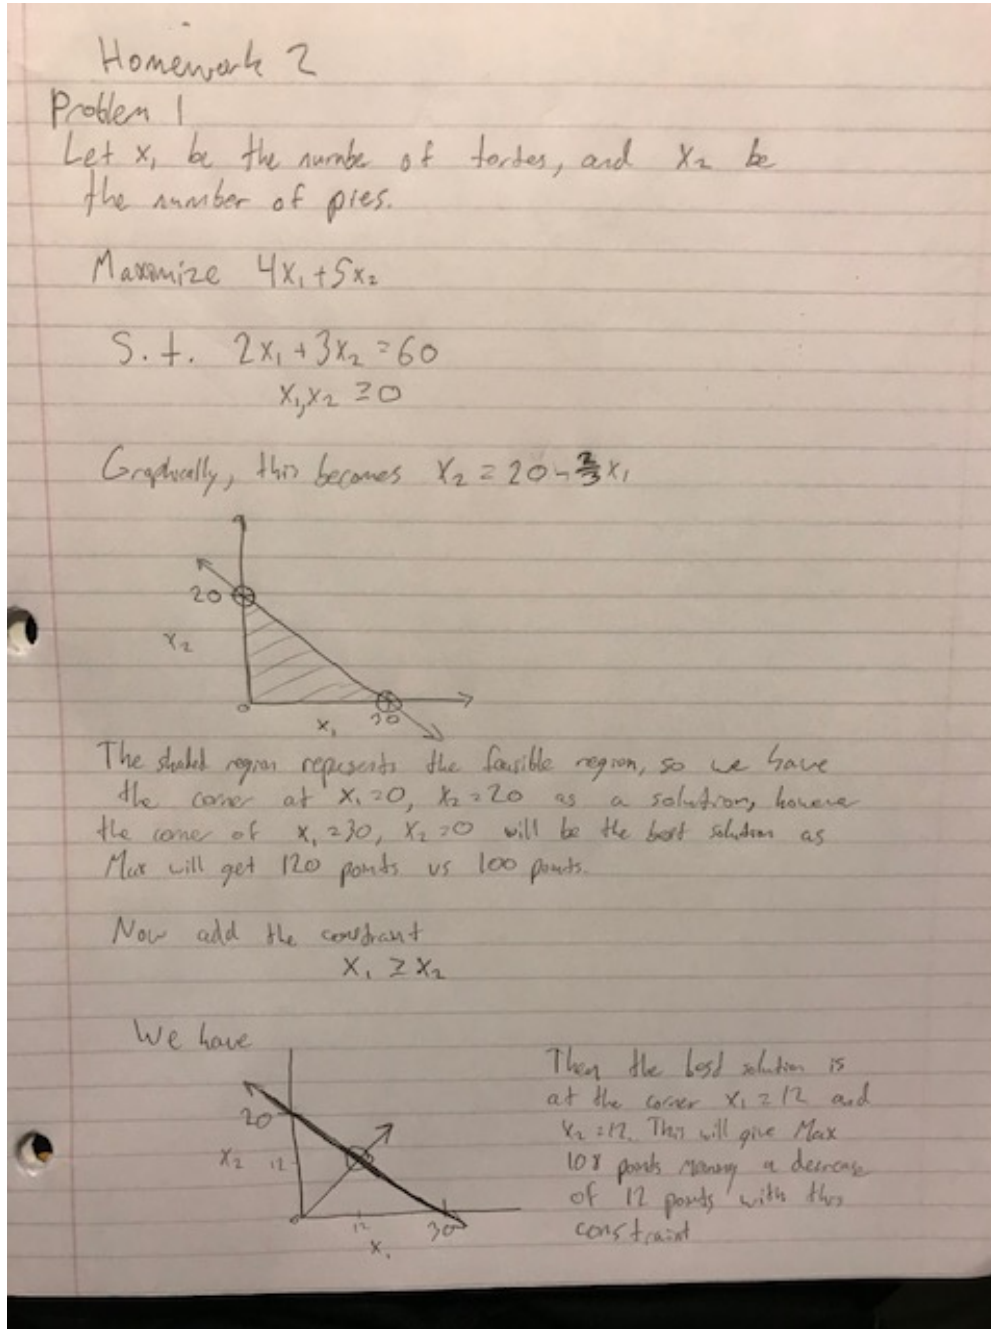 Homework 2
Problem 1
Let x₁ be the number of tortes, and x₂ be
the number of pies.
Maximize 4x₁ + 5x₂
S.t. 2x₁ + 3x₂ = 60
x₁, x₂ ≥ 0
Graphically, this becomes x₂ = 20 - 2/3 x₁
20
x₂
0
x₁
30
The shaded region represents the feasible region, so we have
the corner at x₁ = 0, x₂ = 20 as a solution, however
the corner of x₁ = 30, x₂ = 0 will be the best solution as
Max will get 120 points vs 100 points.
Now add the constraint
x₁ ≥ x₂
We have
20
x₂ 12
0
12
30
x₁
Then the best solution is
at the corner x₁ = 12 and
x₂ = 12. This will give Max
108 points meaning a decrease
of 12 points with this
constraint